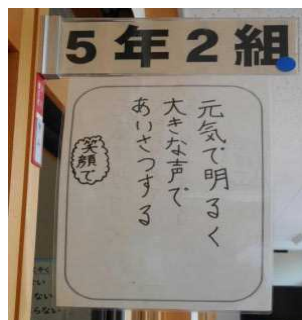 5年2組
元気で明るく
大きな声で
あいさつする
笑顔で